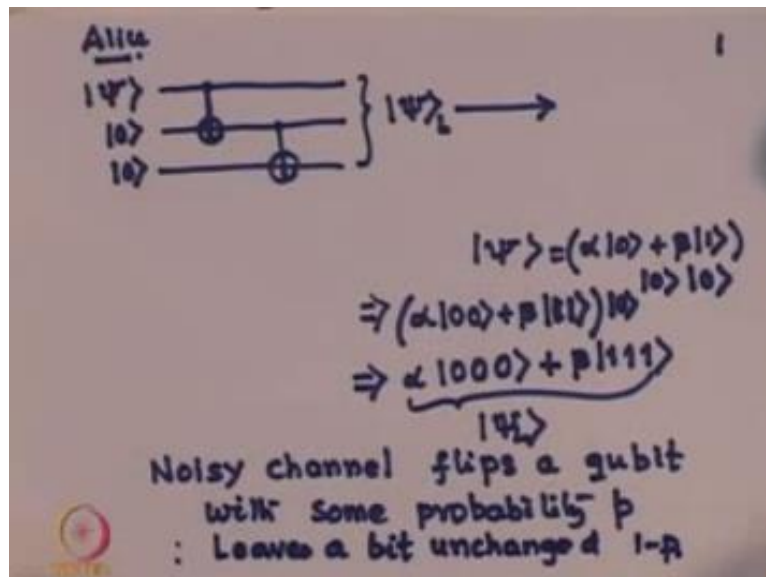 Alice 1
|Ψ⟩
|0⟩ } |Ψ⟩L →
|0⟩
|Ψ⟩=(α|0⟩+β|1⟩)
|0⟩|0⟩
⇒(α|00⟩+β|11⟩)|0⟩
⇒ α|000⟩+β|111⟩
|ΨL⟩
Noisy channel flips a qubit
with some probability p
: Leaves a bit unchanged 1-p